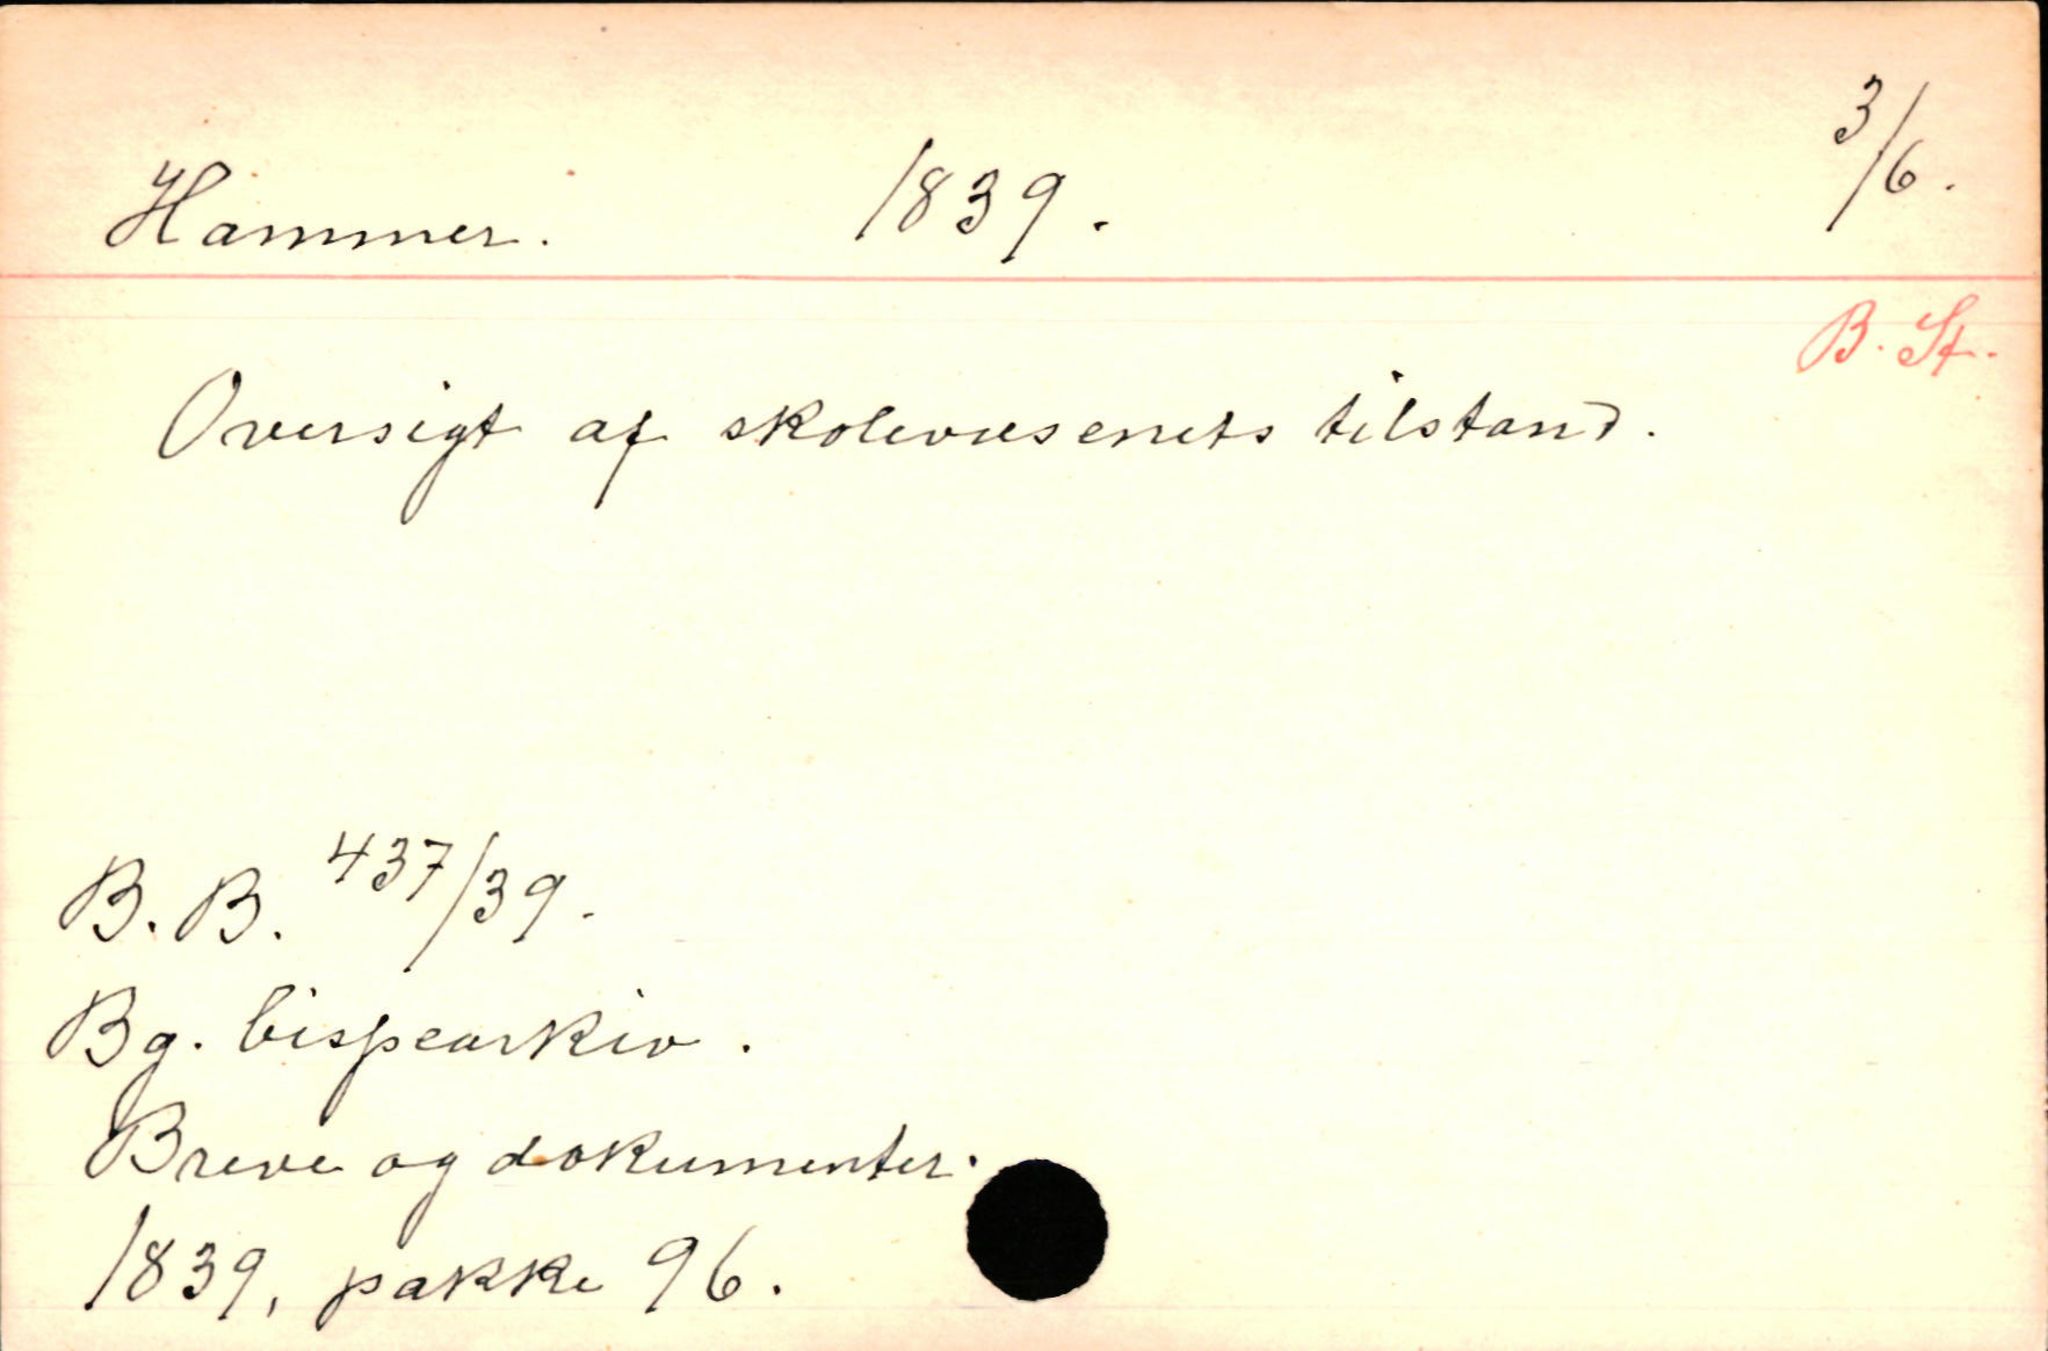 Hammer. 1839. 3/6.
B. St.
Oversigt af skolevæsenets tilstand.
B. B. 437/39.
Bg. bispearkiv.
Breve og dokumenter.
1839, pakke 96.